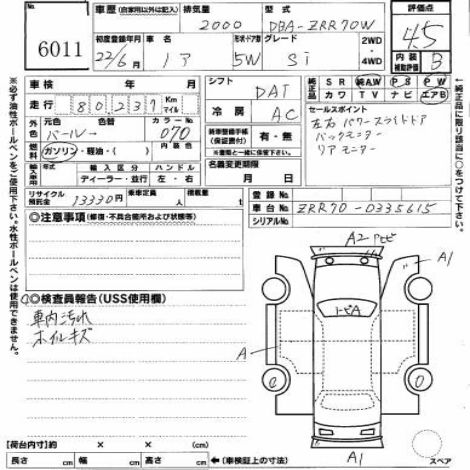 出品番号
6011
車歴 (自家用以外は記入)
排気量
2000
型式
DBA-ZRR70W
評価点
4.5
内装補助評価
B
初度登録年月
22/6月
車名
ノア
形状・ドア数
5W
グレード
Si
2WD・4WD
車検 年 月
走行 80,237 Km マイル
シフト
DAT
冷房
AC
純正品
SR 純AW PS PW
カワ TV ナビ エアB
元色
色替
パール→
カラーNo
070
内装色
燃料
ガソリン・軽油・( )
新車整備手帳(保証書付)
有・無
※書類と一緒に保管下さい。
名義変更期限
月 日
セールスポイント
左右パワースライドドア
バックモニター
リアモニター
輸入車
輸入区分 ハンドル
ディーラー・並行 左・右
リサイクル預託金
13330円
乗車定員
人
積載量
t
登録No.
車台No.
ZRR70-0335615
シリアルNo.
◎注意事項 (修復・不具合箇所および状態等)
◎検査員報告(USS使用欄)
車内汚れ
ホイルキズ
A2
A1
A
A1
スペア
【荷台内寸】約 × ×
長さ cm 幅 cm 高さ cm ←(車検証上の寸法)
※必ず油性ボールペンをご使用下さい。水性ボールペンは使用できません。
←純正品に限り該当に○をつけて下さい。